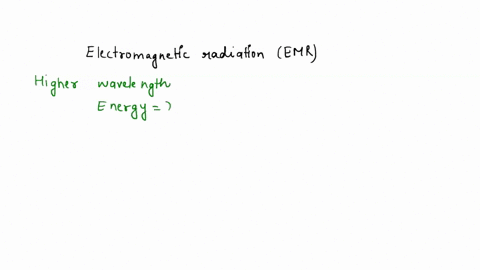 Electromagnetic radiation (EMR)
Higher wavelength
Energy = ?